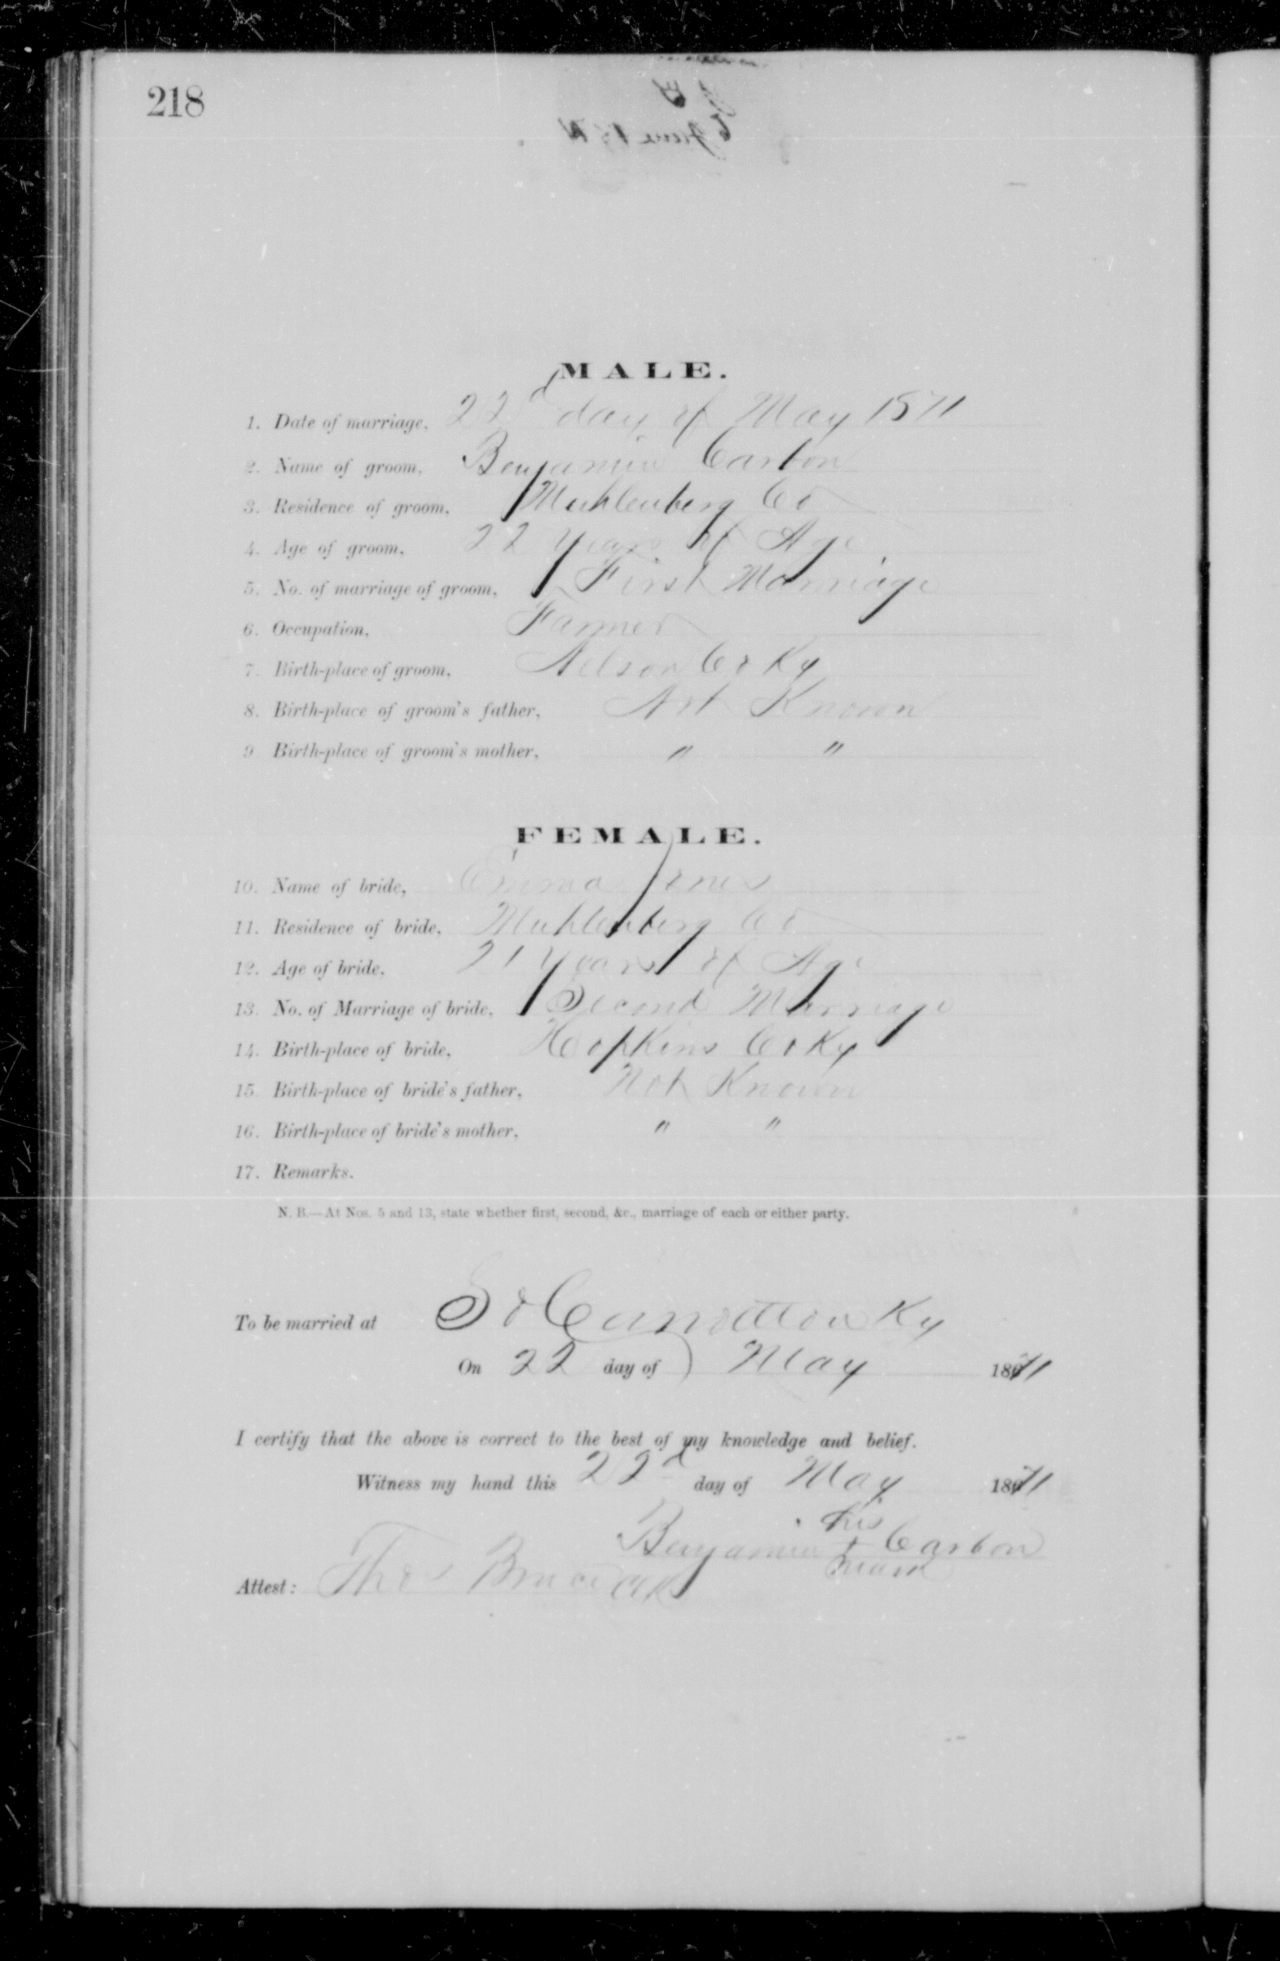 218
MALE.
1. Date of marriage, 22d day of May 1871
2. Name of groom, Benjamin Carbon
3. Residence of groom, Muhlenberg Co
4. Age of groom, 22 years of Age
5. No. of marriage of groom, First Marriage
6. Occupation, Farmer
7. Birth-place of groom, Nelson Co Ky
8. Birth-place of groom's father, Not Known
9 Birth-place of groom's mother, " "
FEMALE.
10. Name of bride, Emma Jones
11. Residence of bride, Muhlenberg Co
12. Age of bride, 21 Years of Age
13. No. of Marriage of bride, Second Marriage
14. Birth-place of bride, Hopkins Co Ky
15. Birth-place of bride's father, Not Known
16. Birth-place of bride's mother, " "
17. Remarks.
N. B.—At Nos. 5 and 13, state whether first, second, &c., marriage of each or either party.
To be married at So Carrollton Ky
On 22 day of May 1871
I certify that the above is correct to the best of my knowledge and belief.
Witness my hand this 22d day of May 1871
his
Benjamin + Carbon
mark
Attest: Thos Clk